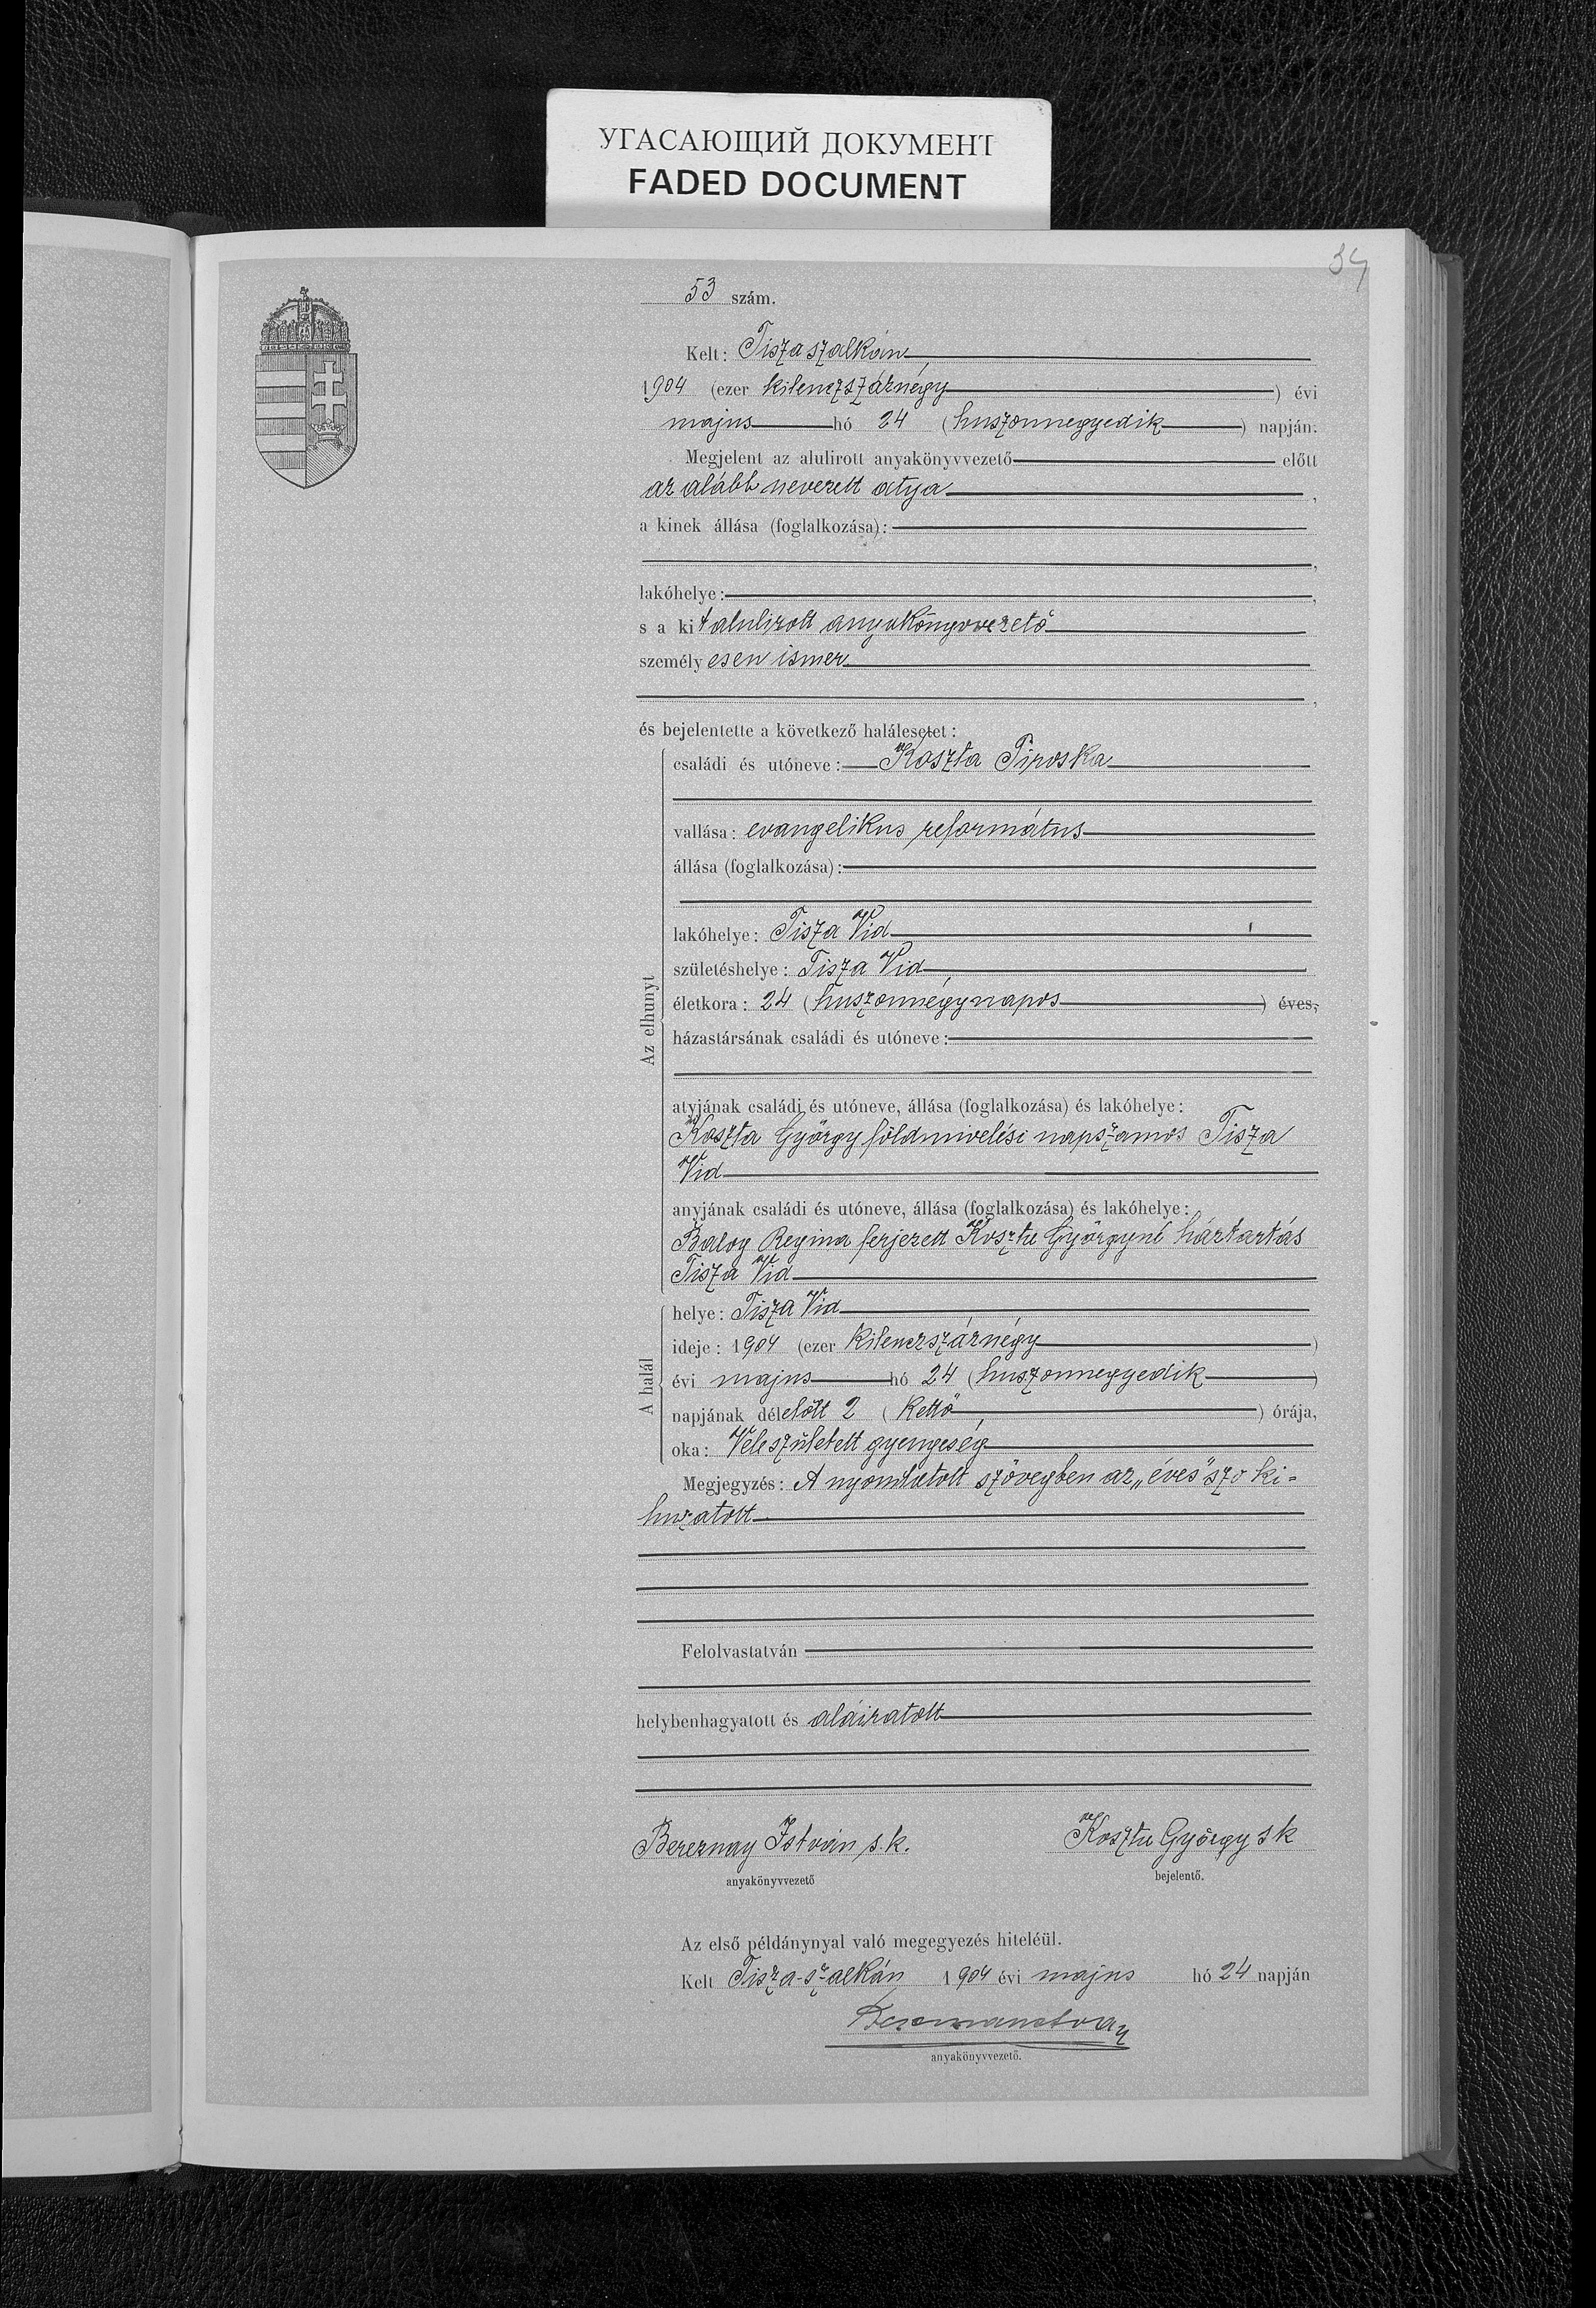 УГАСАЮЩИЙ ДОКУМЕНТ
FADED DOCUMENT
34
53 szám.
Kelt: Tiszaszalkán
1904 (ezer kilenczszáznégy) évi
majus hó 24 (huszonnegyedik) napján.
Megjelent az alulirott anyakönyvvezető előtt
az alább nevezett atya,
a kinek állása (foglalkozása):
,
lakóhelye:,
s a kit alulirott anyakönyvvezető
személyesen ismer
,
és bejelentette a következő halálesetet:
Az elhunyt
családi és utóneve: Koszta Piroska
vallása: evangelikus református
állása (foglalkozása):
lakóhelye: Tisza Vid
születéshelye: Tisza Vid
életkora: 24 (huszonnégy napos) éves,
házastársának családi és utóneve:
atyjának családi és utóneve, állása (foglalkozása) és lakóhelye:
Koszta György földmivelési napszamos Tisza
Vid
anyjának családi és utóneve, állása (foglalkozása) és lakóhelye:
Balog Regina ferjezett Koszta Györgyné háztartás
Tisza Vid
A halál
helye: Tisza Vid
ideje: 1904 (ezer kilenczszáznégy)
évi majus hó 24 (huszonnegyedik)
napjának délelőtt 2 (Kettő) órája,
oka: Veleszületett gyengeség
Megjegyzés: A nyomtatott szövegben az „éves" szo ki-
huzatott
Felolvastatván
helybenhagyatott és aláiratott
Bereznay István s.k. Koszta György sk
anyakönyvvezető bejelentő.
Az első példánynyal való megegyezés hiteléül.
Kelt Tisza-szalkán 1904 évi majus hó 24 napján
anyakönyvvezető.